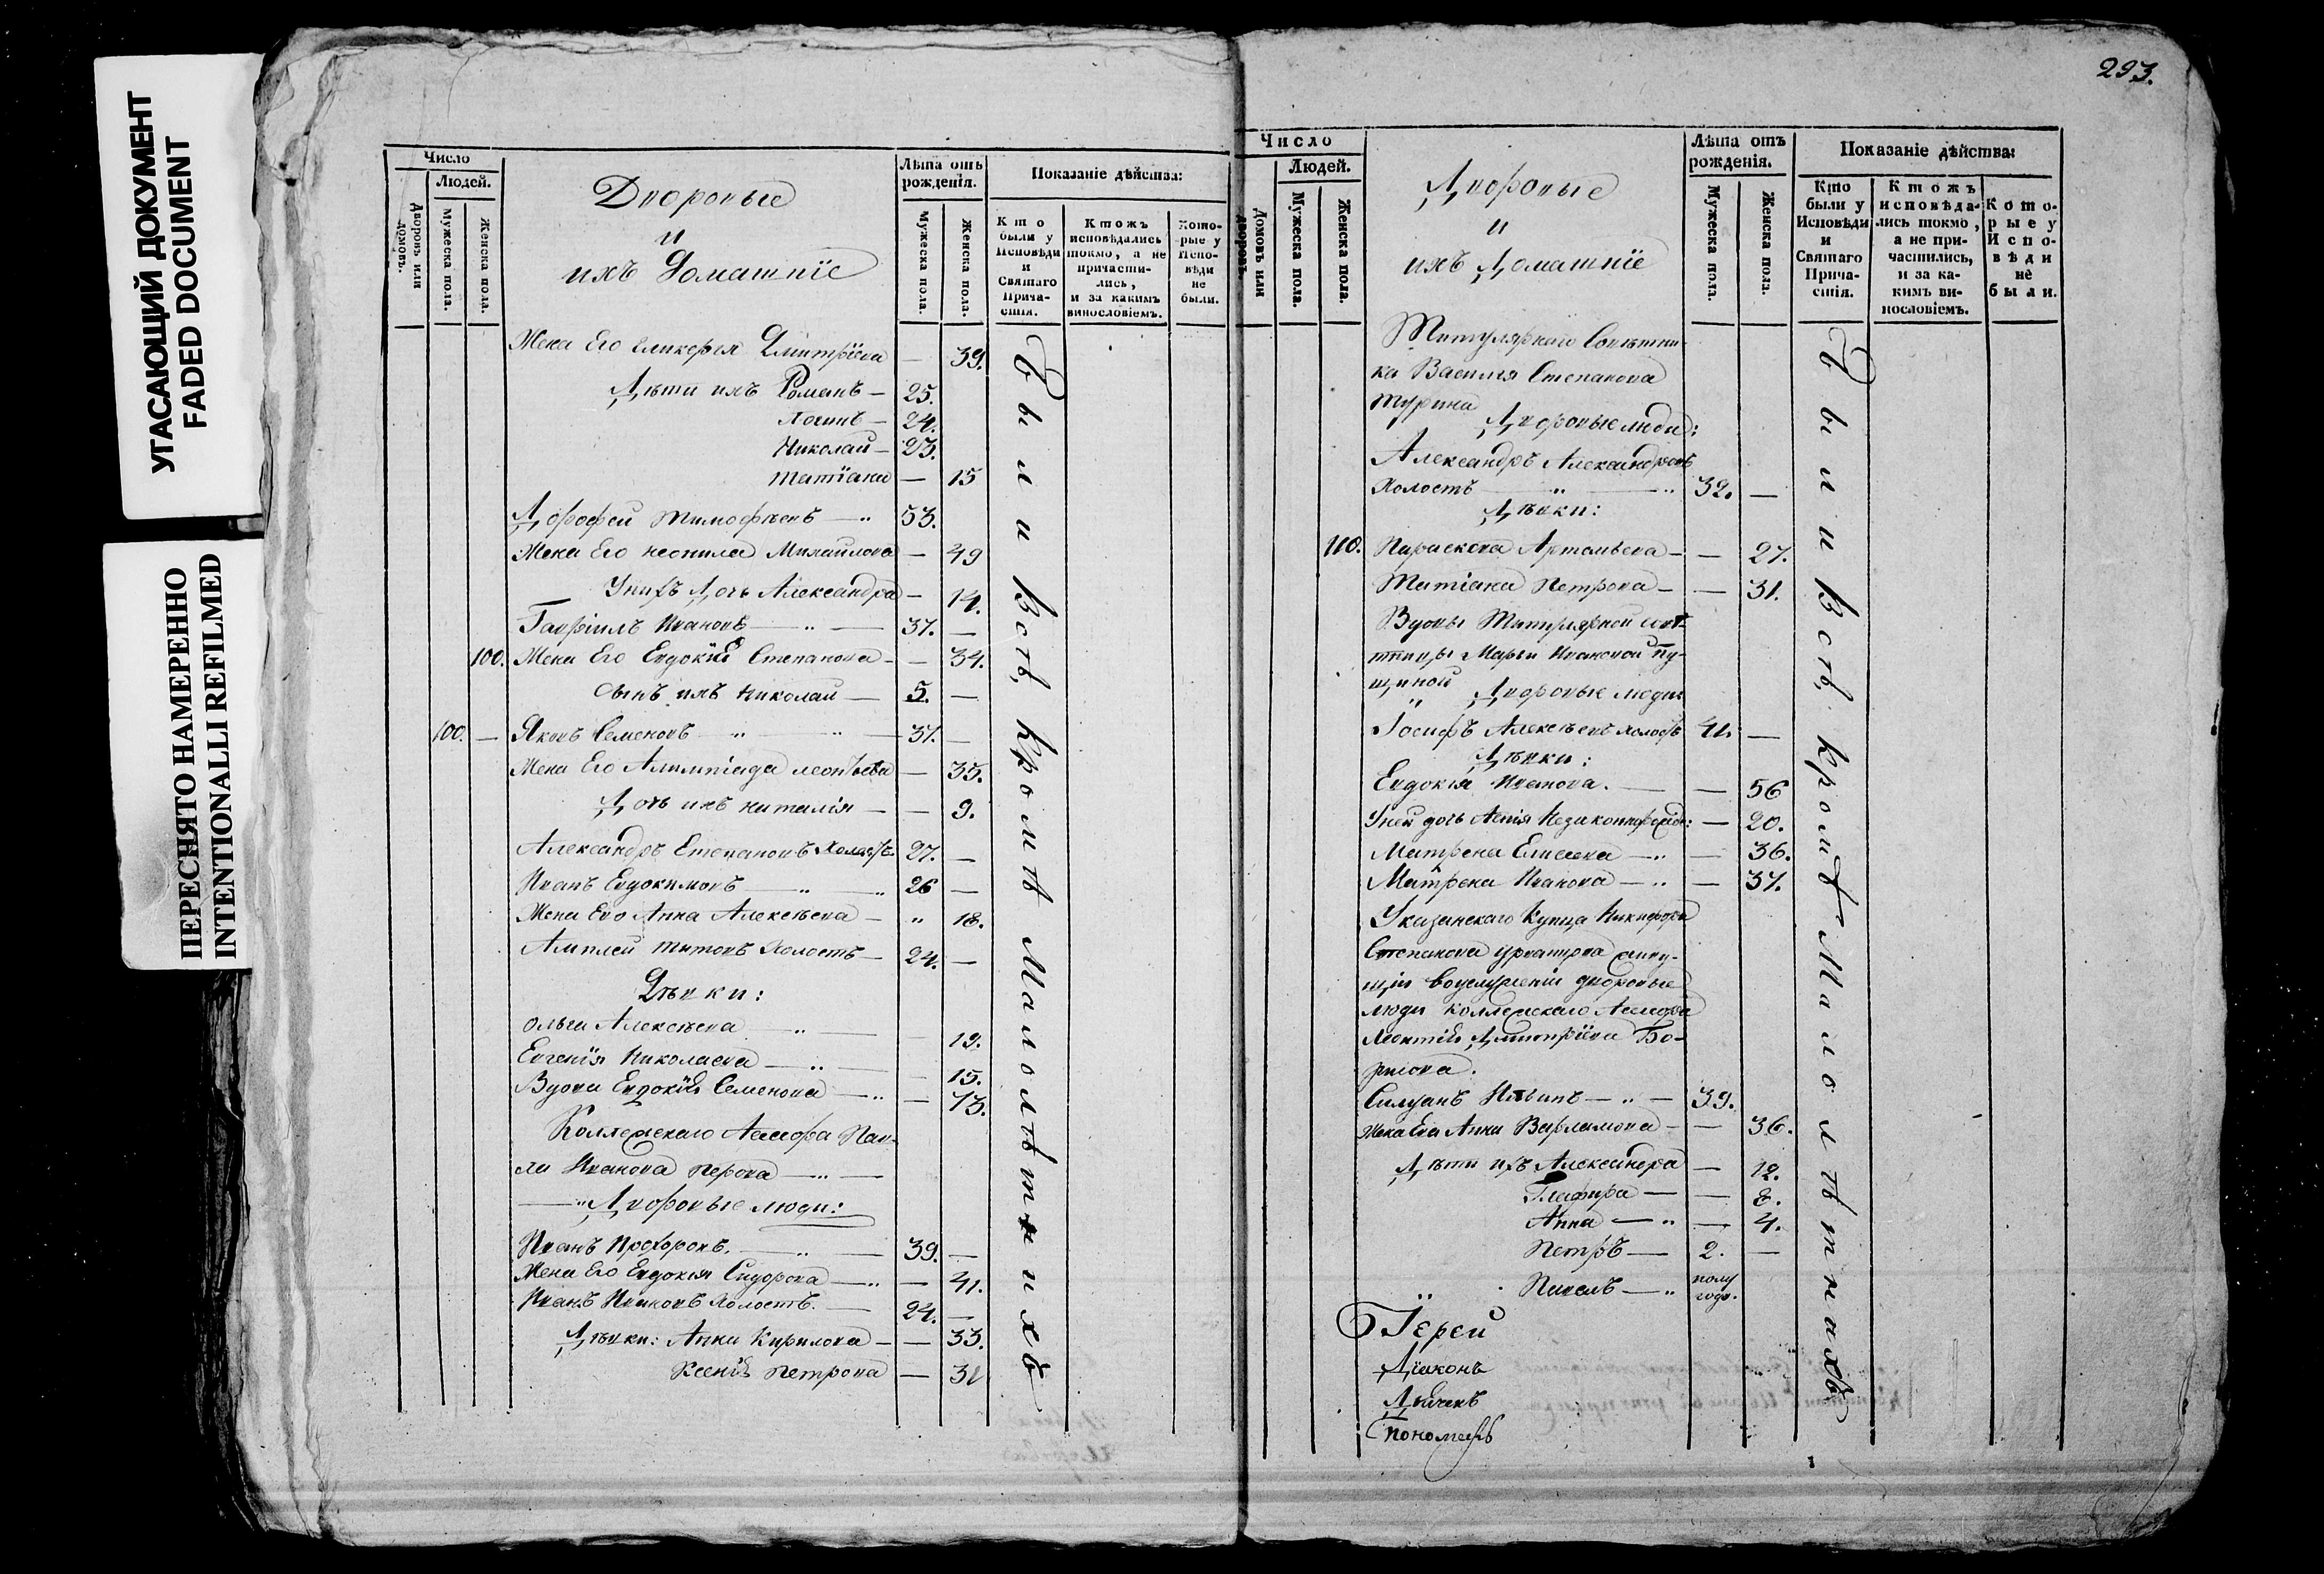 УГАСАЮЩИЙ ДОКУМЕНТ
FADED DOCUMENT
ПЕРЕСНЯТО НАМЕРЕННО
INTENTIONALLI REFILMED
Число
Людей.
Дворовъ или домовъ.
Мужеска пола.
Женска пола.
Дворовые
и
ихъ Домашніе
Лѣта отъ рожденія.
Мужеска пола.
Женска пола.
Показаніе дѣйства:
Кто были у Исповѣди и Святаго Прича-стія.
Ктожъ исповѣдались токмо, а не причасти-лись, и за какимъ винословіемъ.
Кото-рые у Испо-вѣди не были.
Жена Его Гликерія Дмитріева — 39.
Дѣти ихъ Романъ — 25.
Логинъ — 24.
Николай — 23.
Татіана — 15
Дорофей Тимофѣевъ — 53.
Жена Его Неонила Михайлова — 49
У нихъ Дочь Александра — 14.
Гавріилъ Ивановъ — 37. —
100. Жена Его Евдокія Степанова — 34.
Сынъ ихъ Николай — 5. —
100. — Яковъ Семеновъ — 37. —
Жена Его Алимпіада Леонтьева — 35.
Дочь ихъ Наталія — 9.
Александръ Степановъ Холостъ 27. —
Иванъ Евдокимовъ — 26 —
Жена Его Анна Алексѣева — 18.
Титовъ Холостъ — 24. —
Дѣвки:
Ольга Алексѣева — 19.
Евгенія Николаева — 15.
Вдова Евдокія Семенова — 73.
Коллежскаго Ассесора Пав-
ла Иванова Перова —
Дворовые люди:
Иванъ Прохоровъ. — 39. —
Жена Его Евдокія Сидорова — 41.
Иванъ Ивановъ Холостъ. — 24. —
Дѣвки: Анна Кирилова — 33.
Ксенія Петрова — 31
Были Всѣ, кромѣ Малолѣтнихъ
293.
Число
Людей.
Домовъ или дворовъ.
Мужеска пола.
Женска пола.
Дворовые
и
ихъ Домашніе
Лѣта отъ рожденія.
Мужеска пола.
Женска пола.
Показаніе дѣйства:
Кто были у Исповѣди и Святаго Прича-стія.
Ктожъ исповѣда-лись токмо, а не при-частились, и за ка-кимъ ви-нословіемъ.
Кото-рые у Испо-вѣди не были.
Титулярнаго Совѣтни-
ка Василія Степанова
Турина
Дворовые люди:
Александръ Александровъ
Холостъ — 32. —
Дѣвки:
110. Параскева — 27.
Татіана Петрова — 31.
Вдовы Титулярной совѣ-
тницы Марьи Ивановой Пу-
щиной Дворовые люди
Іосифъ Алексѣевъ Холостъ 42. —
Дѣвки:
Евдокія Иванова. — 56
У ней дочь — 20.
Матрена Елисеева — 36.
Матрена Иванова — 37.
У казанскаго Купца Никифора
Степанова
воуслуженіи дворовые
люди Коллежскаго Ассесора
Леонтія Дмитріева Бо-
Силуанъ Ильинъ — 39.
Жена Его Анна Варламова — 36.
Дѣти ихъ Александра — 12.
Глафира — 8.
Анна — 4.
Петръ — 2. —
Павелъ — полу годъ.
Іерей
Діаконъ
Дьячекъ
Пономарь
Были Всѣ, кромѣ Малолѣтнихъ